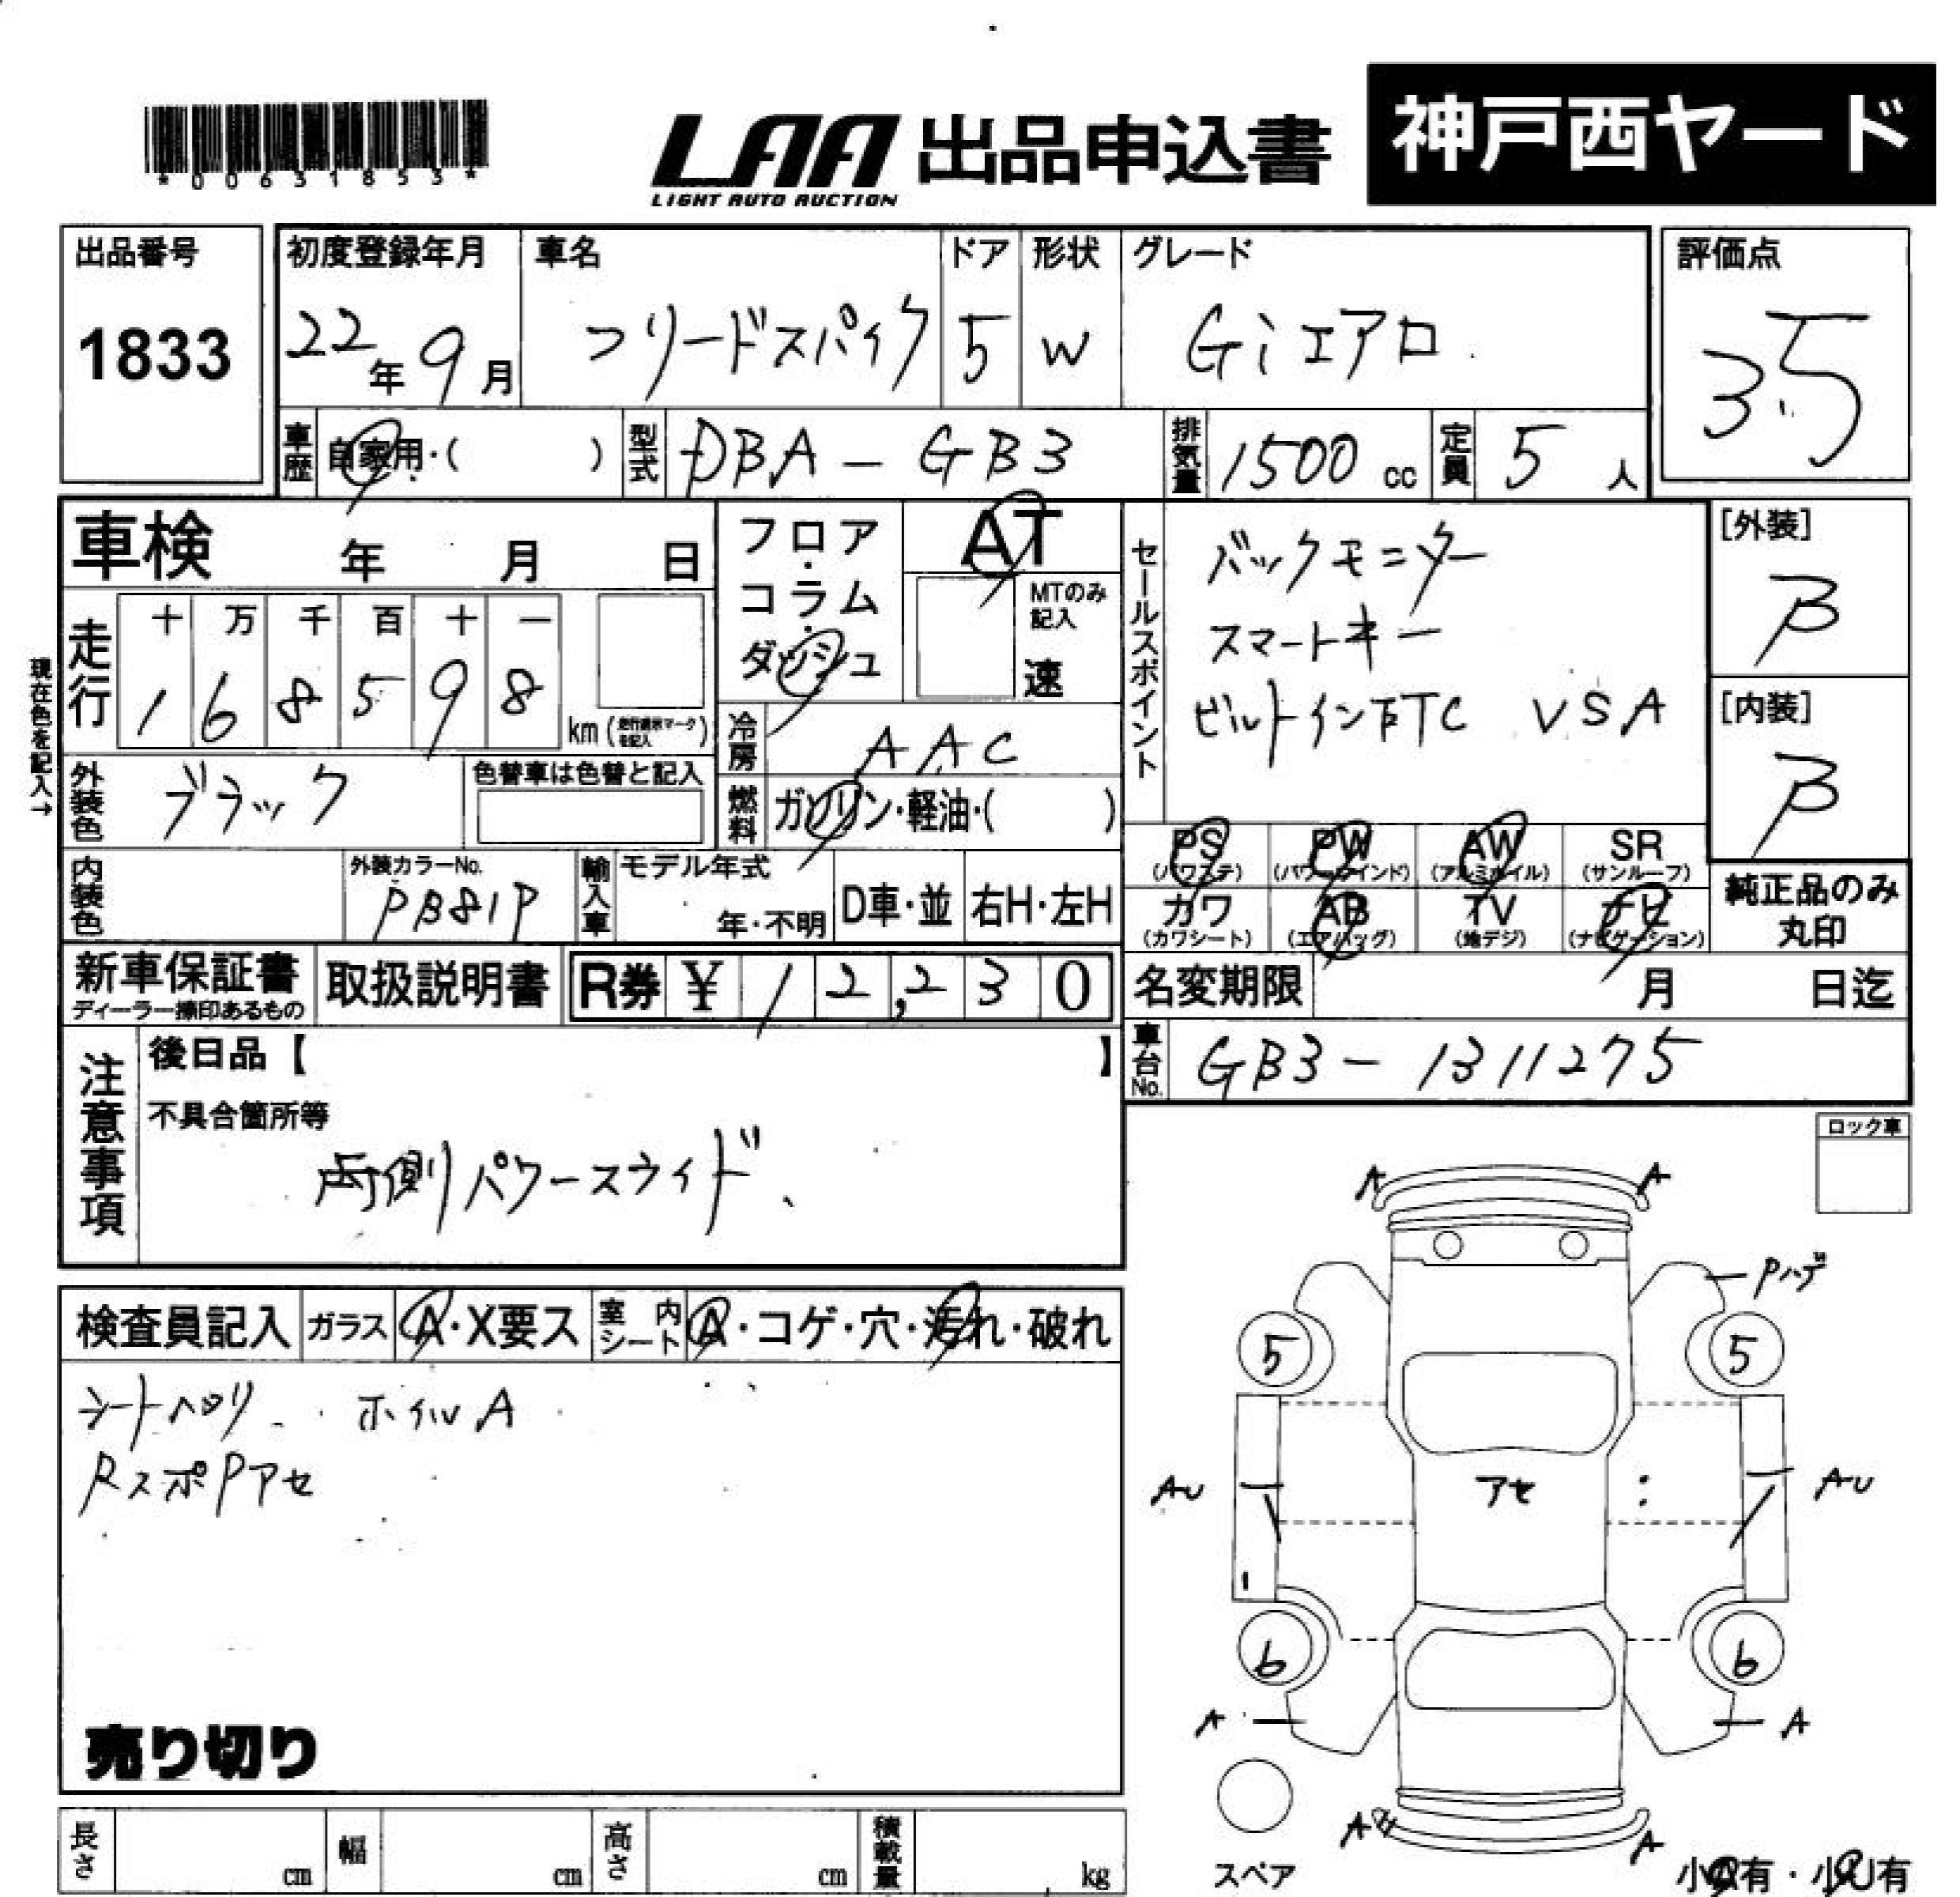 *00631853*
LAA 出品申込書 神戸西ヤード
LIGHT AUTO AUCTION
出品番号 初度登録年月 車名 ドア 形状 グレード 評価点
1833 22年9月 フリードスパイク 5 W Giエアロ 3.5
車歴 自家用・( ) 型式 DBA-GB3 排気量 1500 cc 定員 5 人
車検 年 月 日
フロア・コラム・ダッシュ
AT
MTのみ記入
速
セールスポイント
バックモニター
スマートキー
ビルトインETC VSA
[外装]
B
[内装]
B
現在色を記入→
走行 十 万 千 百 十 一
1 6 8 5 9 8 km (走行表示マークを記入)
冷房 AAC
外装色 ブラック 色替車は色替と記入
燃料 ガソリン・軽油・( )
PS PW AW SR
(パワステ) (パワーウインド) (アルミホイル) (サンルーフ)
カワ AB TV ナビ
(カワシート) (エアバッグ) (地デジ) (ナビゲーション)
純正品のみ
丸印
内装色 外装カラーNo. PB81P 輸入車 モデル年式 年・不明 D車・並 右H・左H
新車保証書 取扱説明書 R券 ¥ 12,230
ディーラー捺印あるもの
名変期限 月 日迄
車台No. GB3-1311275
注意事項
後日品【 】
不具合箇所等
両側パワースライド、
ロック車
A A
Pハゲ
5 5
検査員記入 ガラス A・X要ス 室内シート A・コゲ・穴・汚れ・破れ
シートヘリ ホイルA
RスポPアセ
AU アセ AU
6 6
A A
売り切り
A A
スペア
小A有・小U有
長さ cm 幅 cm 高さ cm 積載量 kg